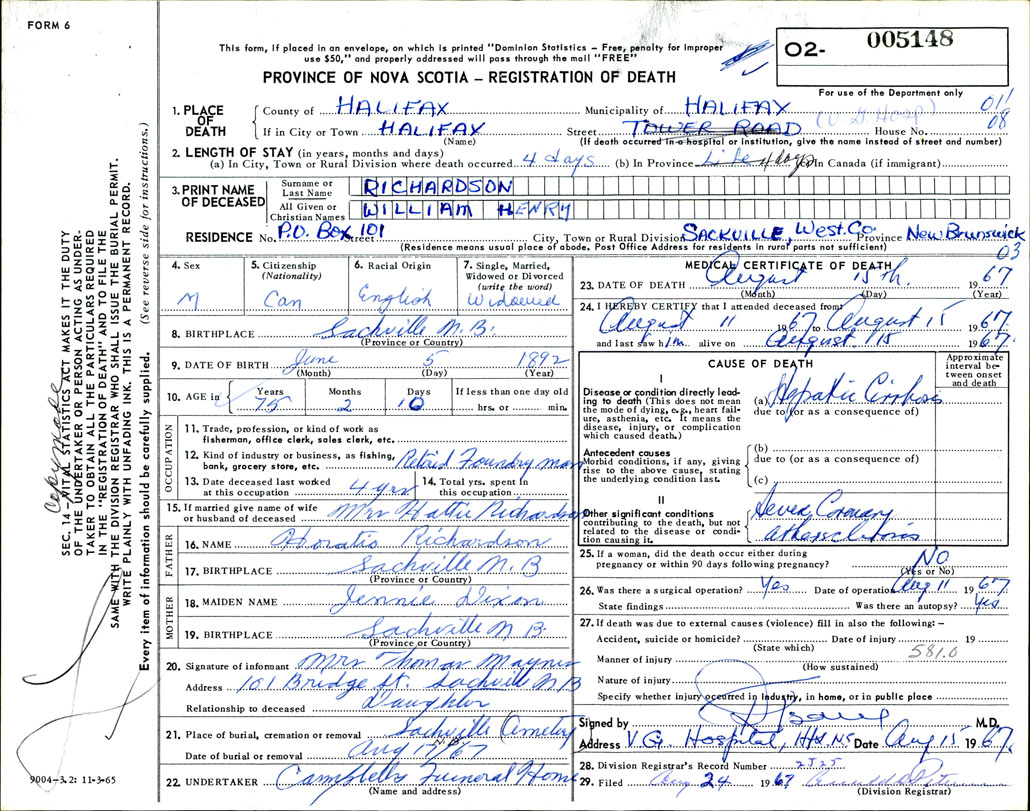 FORM 6
This form, if placed in an envelope, on which is printed "Dominion Statistics – Free, penalty for improper
use $50," and properly addressed will pass through the mail "FREE"
O2- 005148
PROVINCE OF NOVA SCOTIA – REGISTRATION OF DEATH
For use of the Department only
011
08
1. PLACE OF DEATH
County of HALIFAX Municipality of HALIFAX (V.G. Hosp)
If in City or Town HALIFAX Street TOWER ROAD House No.
(Name) (If death occurred in a hospital or institution, give the name instead of street and number)
2. LENGTH OF STAY (in years, months and days)
(a) In City, Town or Rural Division where death occurred 4 days (b) In Province Life 4 days (c) In Canada (if immigrant)
3. PRINT NAME OF DECEASED
Surname or Last Name RICHARDSON
All Given or Christian Names WILLIAM HENRY
RESIDENCE No. P.O. Box 101 Street City, Town or Rural Division SACKVILLE, West. Co. Province New Brunswick
(Residence means usual place of abode. Post Office Address for residents in rural parts not sufficient)
03
4. Sex
M
5. Citizenship
(Nationality)
Can
6. Racial Origin
English
7. Single, Married,
Widowed or Divorced
(write the word)
Widowed
8. BIRTHPLACE Sackville N.B.
(Province or Country)
9. DATE OF BIRTH June 5 1892
(Month) (Day) (Year)
10. AGE in
Years 75
Months 2
Days 10
If less than one day old
hrs. or min.
OCCUPATION
11. Trade, profession, or kind of work as
fisherman, office clerk, sales clerk, etc.
12. Kind of industry or business, as fishing,
bank, grocery store, etc. Retired Foundry man
13. Date deceased last worked
at this occupation 4 yrs
14. Total yrs. spent in
this occupation
15. If married give name of wife
or husband of deceased Mrs Hattie Richardson
FATHER
16. NAME Horatio Richardson
17. BIRTHPLACE Sackville N.B
(Province or Country)
MOTHER
18. MAIDEN NAME Jennie Dixon
19. BIRTHPLACE Sackville N B.
(Province or Country)
20. Signature of informant Mrs Thomas
Address 101 Bridge St. Sackville N B
Relationship to deceased Daughter
21. Place of burial, cremation or removal Sackville Cemetery
N.B.
Date of burial or removal Aug 17/67
22. UNDERTAKER Campbells Funeral Home
(Name and address)
MEDICAL CERTIFICATE OF DEATH
23. DATE OF DEATH August 15th. 1967
(Month) (Day) (Year)
24. I HEREBY CERTIFY that I attended deceased from
August 11 1967 to August 15 1967
and last saw him alive on August 15 1967.
CAUSE OF DEATH
Approximate
interval be-
tween onset
and death
I
Disease or condition directly lead-
ing to death (This does not mean
the mode of dying, e.g., heart fail-
ure, asthenia, etc. It means the
disease, injury, or complication
which caused death.)
(a) Hepatic Cirrhosis
due to (or as a consequence of)
Antecedent causes
Morbid conditions, if any, giving
rise to the above cause, stating
the underlying condition last.
(b)
due to (or as a consequence of)
(c)
II
Other significant conditions
contributing to the death, but not
related to the disease or condi-
tion causing it.
Severe Coronary
25. If a woman, did the death occur either during
pregnancy or within 90 days following pregnancy? NO
(Yes or No)
26. Was there a surgical operation? Yes Date of operation Aug 11 1967
State findings Was there an autopsy? Yes
27. If death was due to external causes (violence) fill in also the following: –
Accident, suicide or homicide? Date of injury 19
(State which)
581.0
Manner of injury
(How sustained)
Nature of injury
Specify whether injury occurred in industry, in home, or in public place
Signed by M.D.
Address V.G. Hospital, Hfx NS Date Aug 15 1967.
28. Division Registrar's Record Number 2525
29. Filed Aug 24 1967
(Division Registrar)
SEC. 14 – VITAL STATISTICS ACT MAKES IT THE DUTY
OF THE UNDERTAKER OR PERSON ACTING AS UNDER-
TAKER TO OBTAIN ALL THE PARTICULARS REQUIRED
IN THE "REGISTRATION OF DEATH" AND TO FILE THE
SAME WITH THE DIVISION REGISTRAR WHO SHALL ISSUE THE BURIAL PERMIT.
WRITE PLAINLY WITH UNFADING INK. THIS IS A PERMANENT RECORD.
Every item of information should be carefully supplied. (See reverse side for instructions.)
9004-3.2: 11-3-65